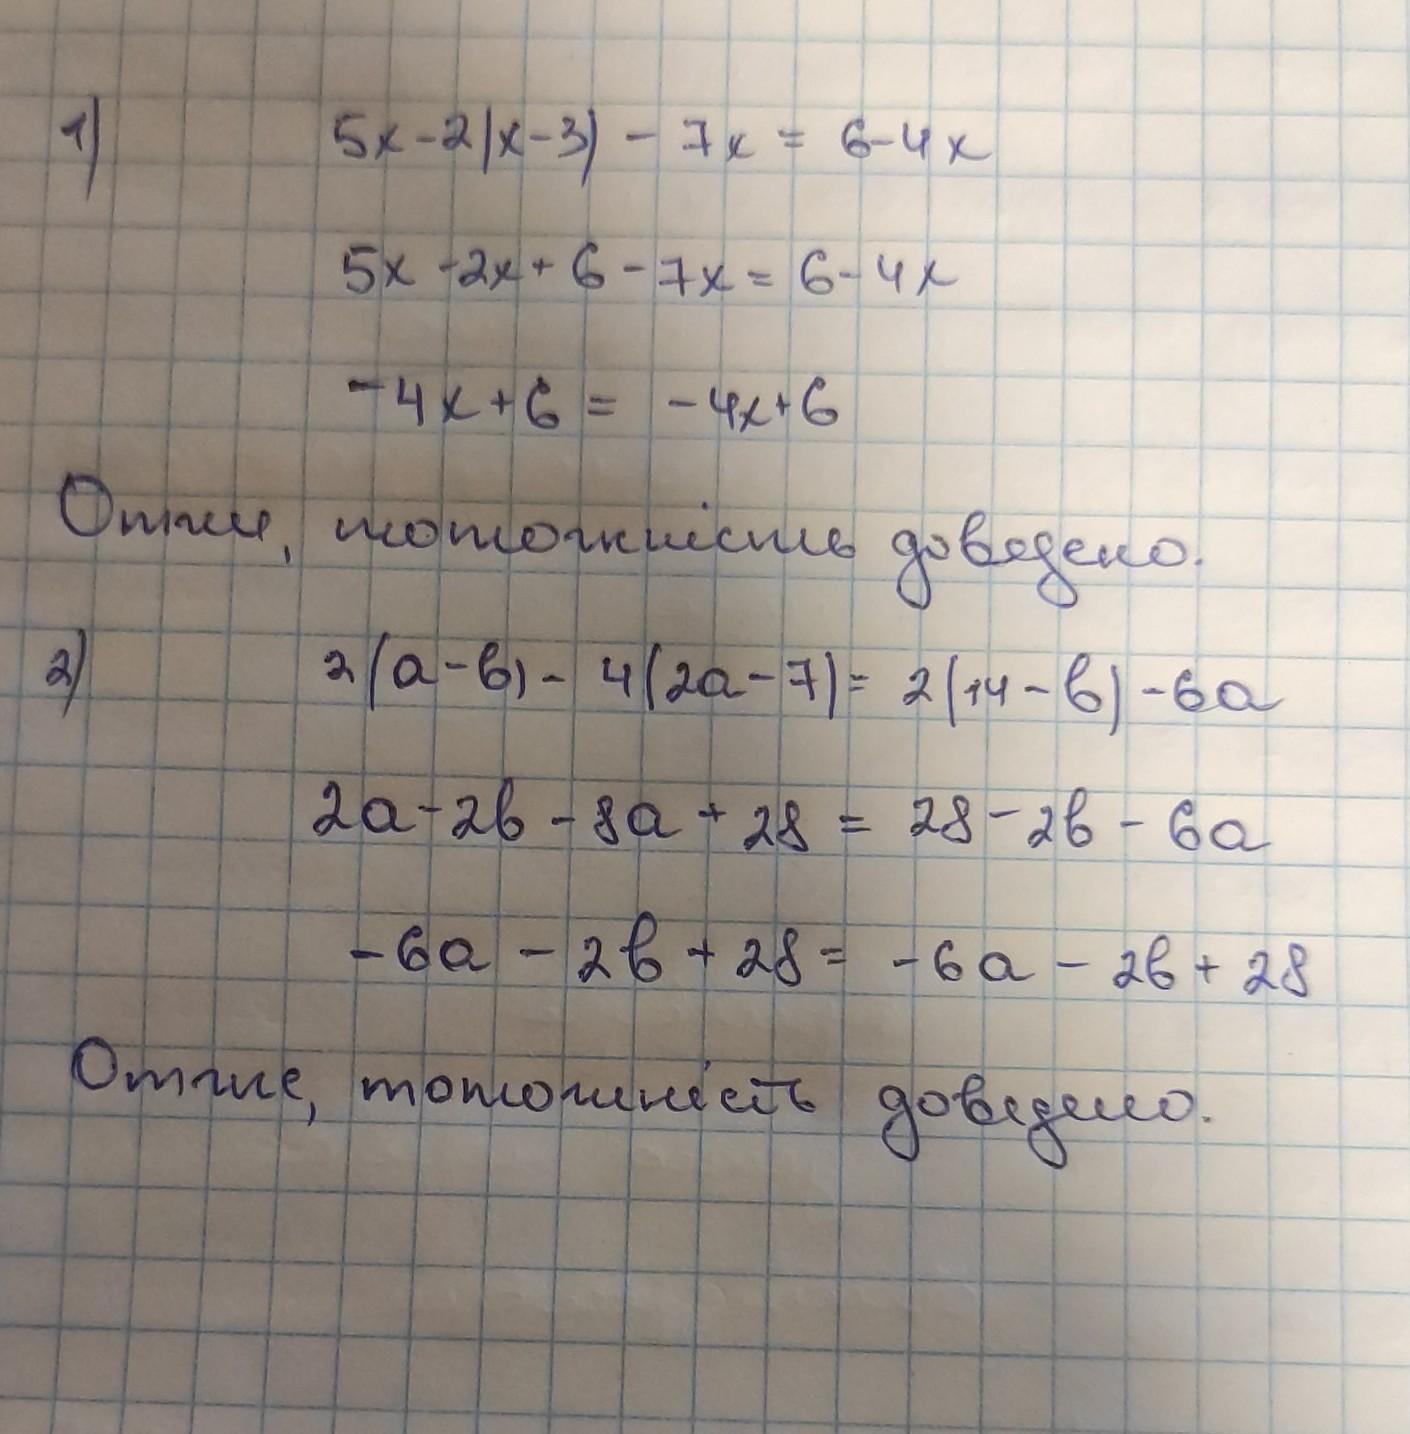 1) 5x-2(x-3) - 7x = 6-4x
5x -2x+ 6 - 7x = 6-4x
-4x+6 = -4x+6
Отже, тотожність доведено.
2) 2(a-b) - 4(2a-7) = 2(14-b) -6a
2a-2b - 8a + 28 = 28-2b - 6a
-6a - 2b + 28 = -6a - 2b + 28
Отже, тотожність доведено.